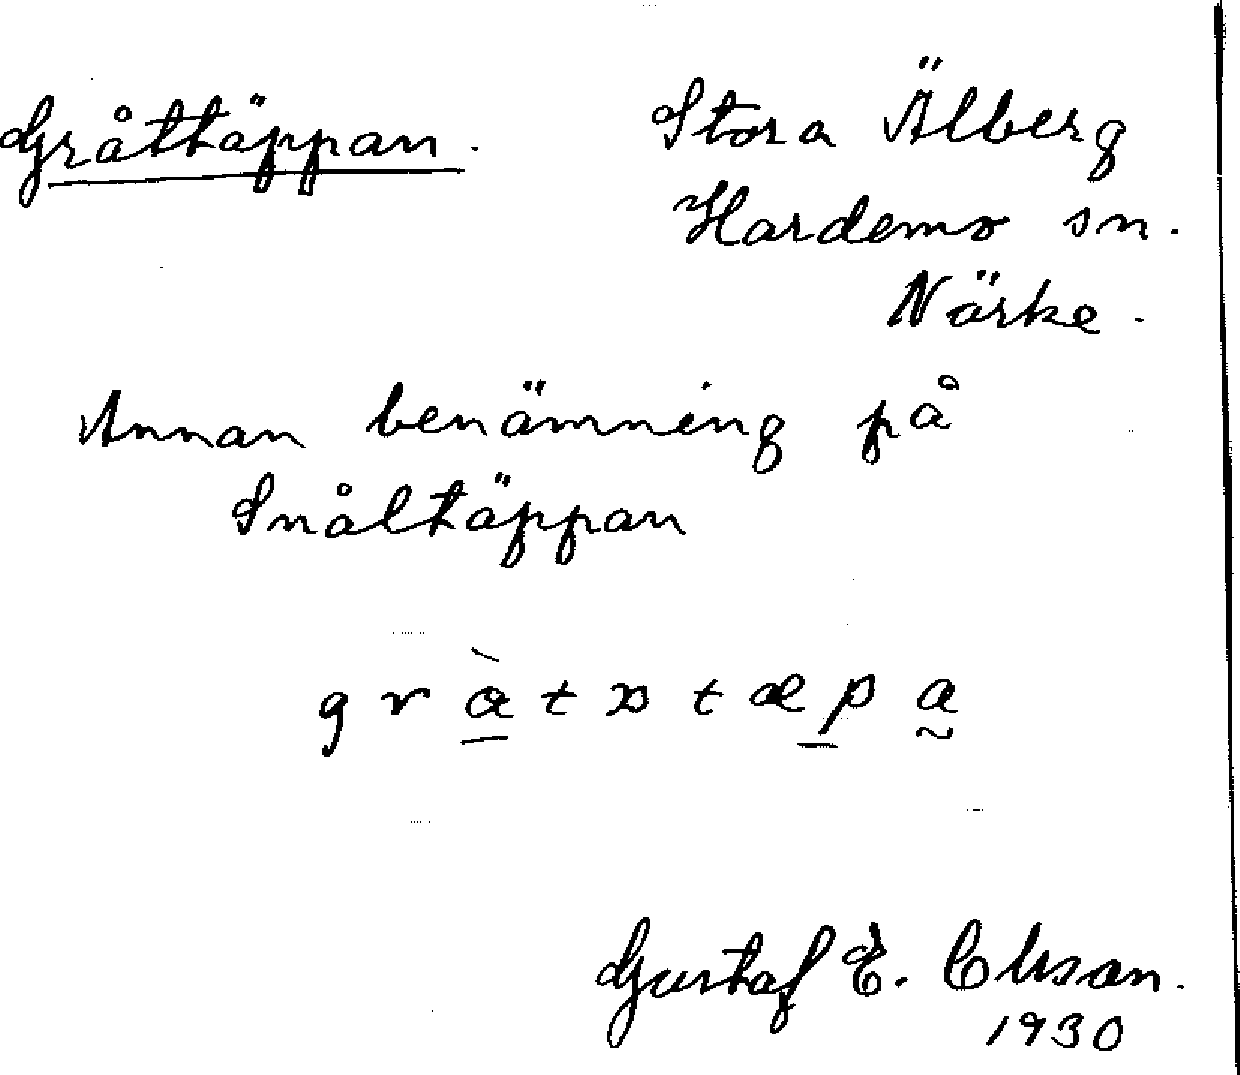 Gråttäppan.
Stora Älberg
Hardemo sn.
Närke.
Annan benämning på
Snåltäppan
Gustaf E. Olsson.
1930